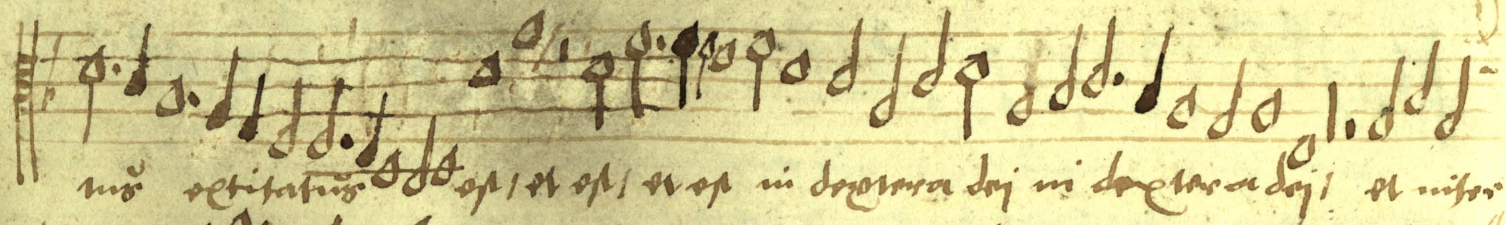 nus extitatus est / et est / et est in dextera dej in dextera dej / et inter